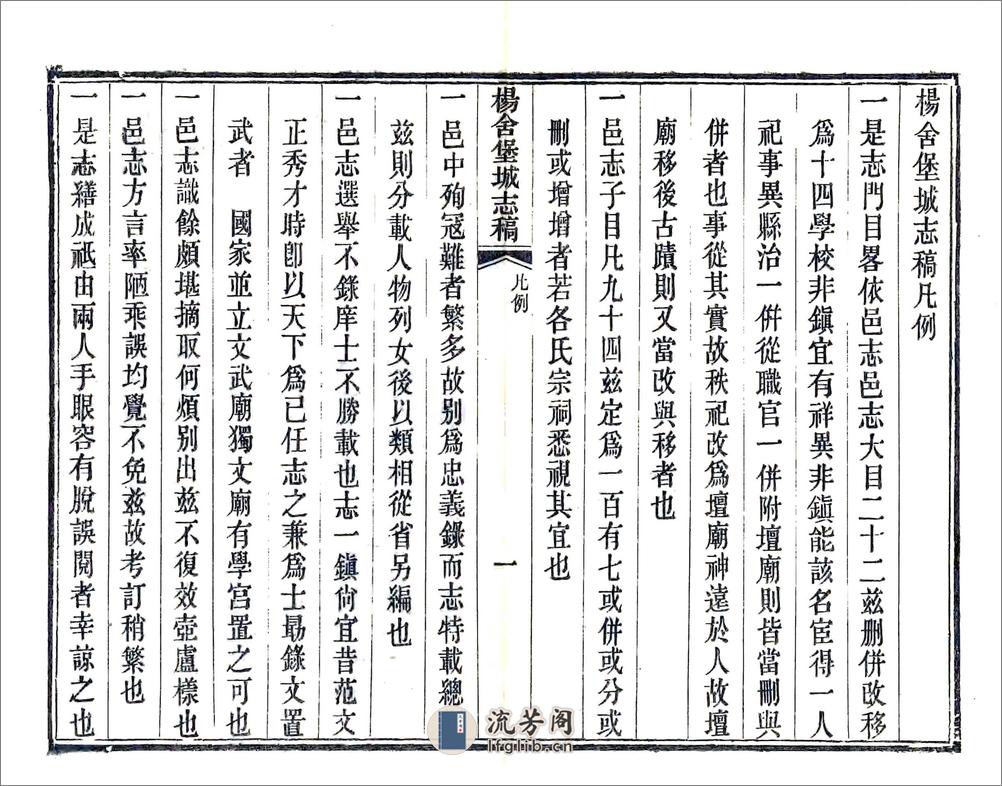 楊舍堡城志稿凡例
一是志門目畧依邑志邑志大目二十二茲刪併改移
爲十四學校非鎭宜有祥異非鎭能該名宦得一人
祀事異縣治一併從職官一併附壇廟則皆當刪與
併者也事從其實故秩祀改爲壇廟神遠於人故壇
廟移後古蹟則又當改與移者也
一邑志子目凡九十四茲定爲一百有七或併或分或
刪或增增者若各氏宗祠悉視其宜也
楊舍堡城志稿 凡例 一
一邑中殉冦難者繁多故别爲忠義錄而志特載總
茲則分載人物列女後以類相從省另編也
一邑志選舉不錄庠士不勝載也志一鎭尙宜昔范文
正秀才時卽以天下爲己任志之兼爲士勗錄文置
武者 國家並立文武廟獨文廟有學宮置之可也
一邑志識餘頗堪摘取何煩别出茲不復效壺盧樣也
一邑志方言率陋乘誤均覺不免茲故考訂稍繁也
一是志繕成祗由兩人手眼容有脫誤閱者幸諒之也
流芳阁
lfglib.cn